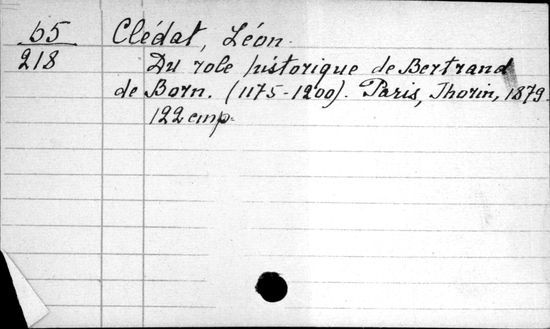 65
218
Clédat, Léon.
Du role historique de Bertrand
de Born. (1175-1200). Paris, Thorin, 1879
122 стр.